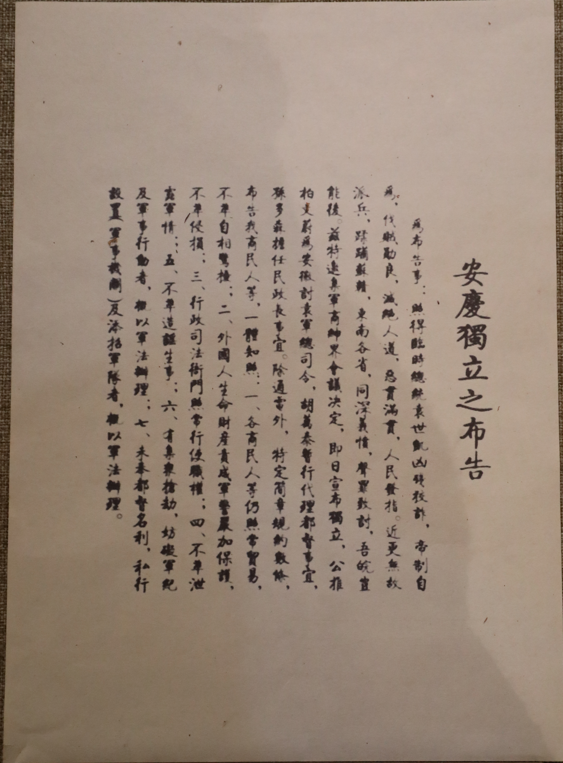 安慶獨立之布告
為布告事：照得臨時總統袁世凱凶殘狡詐，帝制自
為，伐賊勛良，滅絕人道，惡貫滿貫，人民髮指。近更無故
派兵，蹂躪蘇贛，東南各省，同深義憤，聲罪致討，吾皖豈
能後。茲特邀集軍商紳界會議決定，即日宣布獨立，公推
柏文蔚為安徽討袁軍總司令，胡萬泰暫行代理都督事宜，
孫多森擔任民政長事宜。除通電外，特定簡章規約數條，
布告我商民人等，一體知照：一、各商民人等仍照常貿易，
不準自相驚擾；二、外國人生命財產責成軍警嚴加保護，
不準侵損；三、行政司法衙門照常行使職權；四、不準泄
露軍情；五、不準造謠生事；六、有集眾搶劫，妨礙軍紀
及軍事行動者，概以軍法辦理；七、未奉都督名利，私行
設置（軍事機關）及添招軍隊者，概以軍法辦理。